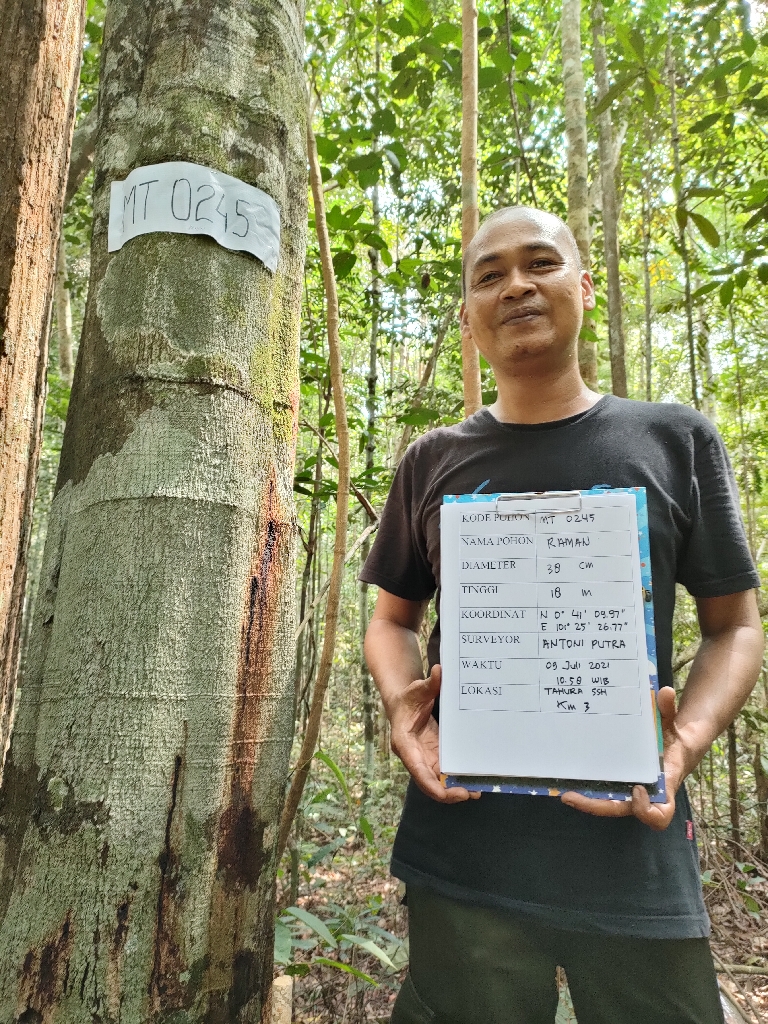 MT 0245
KODE POHON MT 0245
NAMA POHON RAMAN
DIAMETER 38 cm
TINGGI 18 m
KOORDINAT N 0° 41' 09.97"
E 101° 25' 26.77"
SURVEYOR ANTONI PUTRA
WAKTU 09 Juli 2021
10.58 WIB
LOKASI TAHURA SSH
Km 3